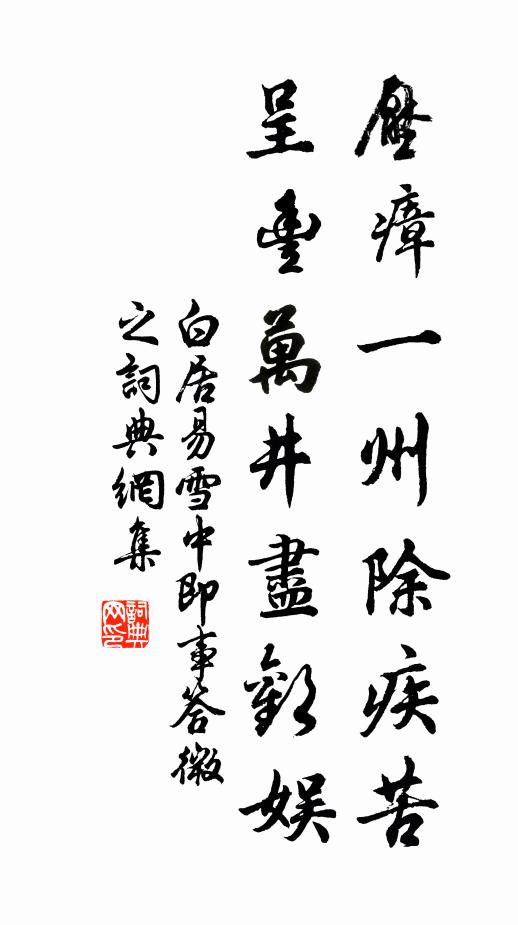 壓瘴一州除疾苦
呈豐萬井盡歡娛
白居易雪中即事答微
之詞典網集
詞典
网印